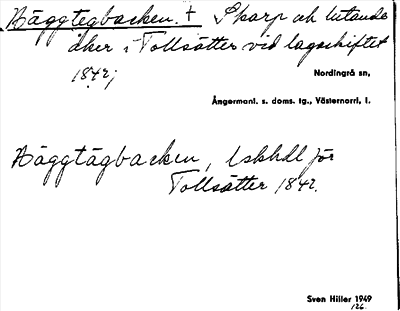 Häggtegbacken. † Skarp och lutande
åker i Tollsätter vid lagaskiftet
1842;
Nordingrå sn,
Ångermanl. s. doms. tg., Västernorrl. l.
Häggtägbacken, Lskhdl för
Tollsätter 1842.
Sven Hiller 1949
126.